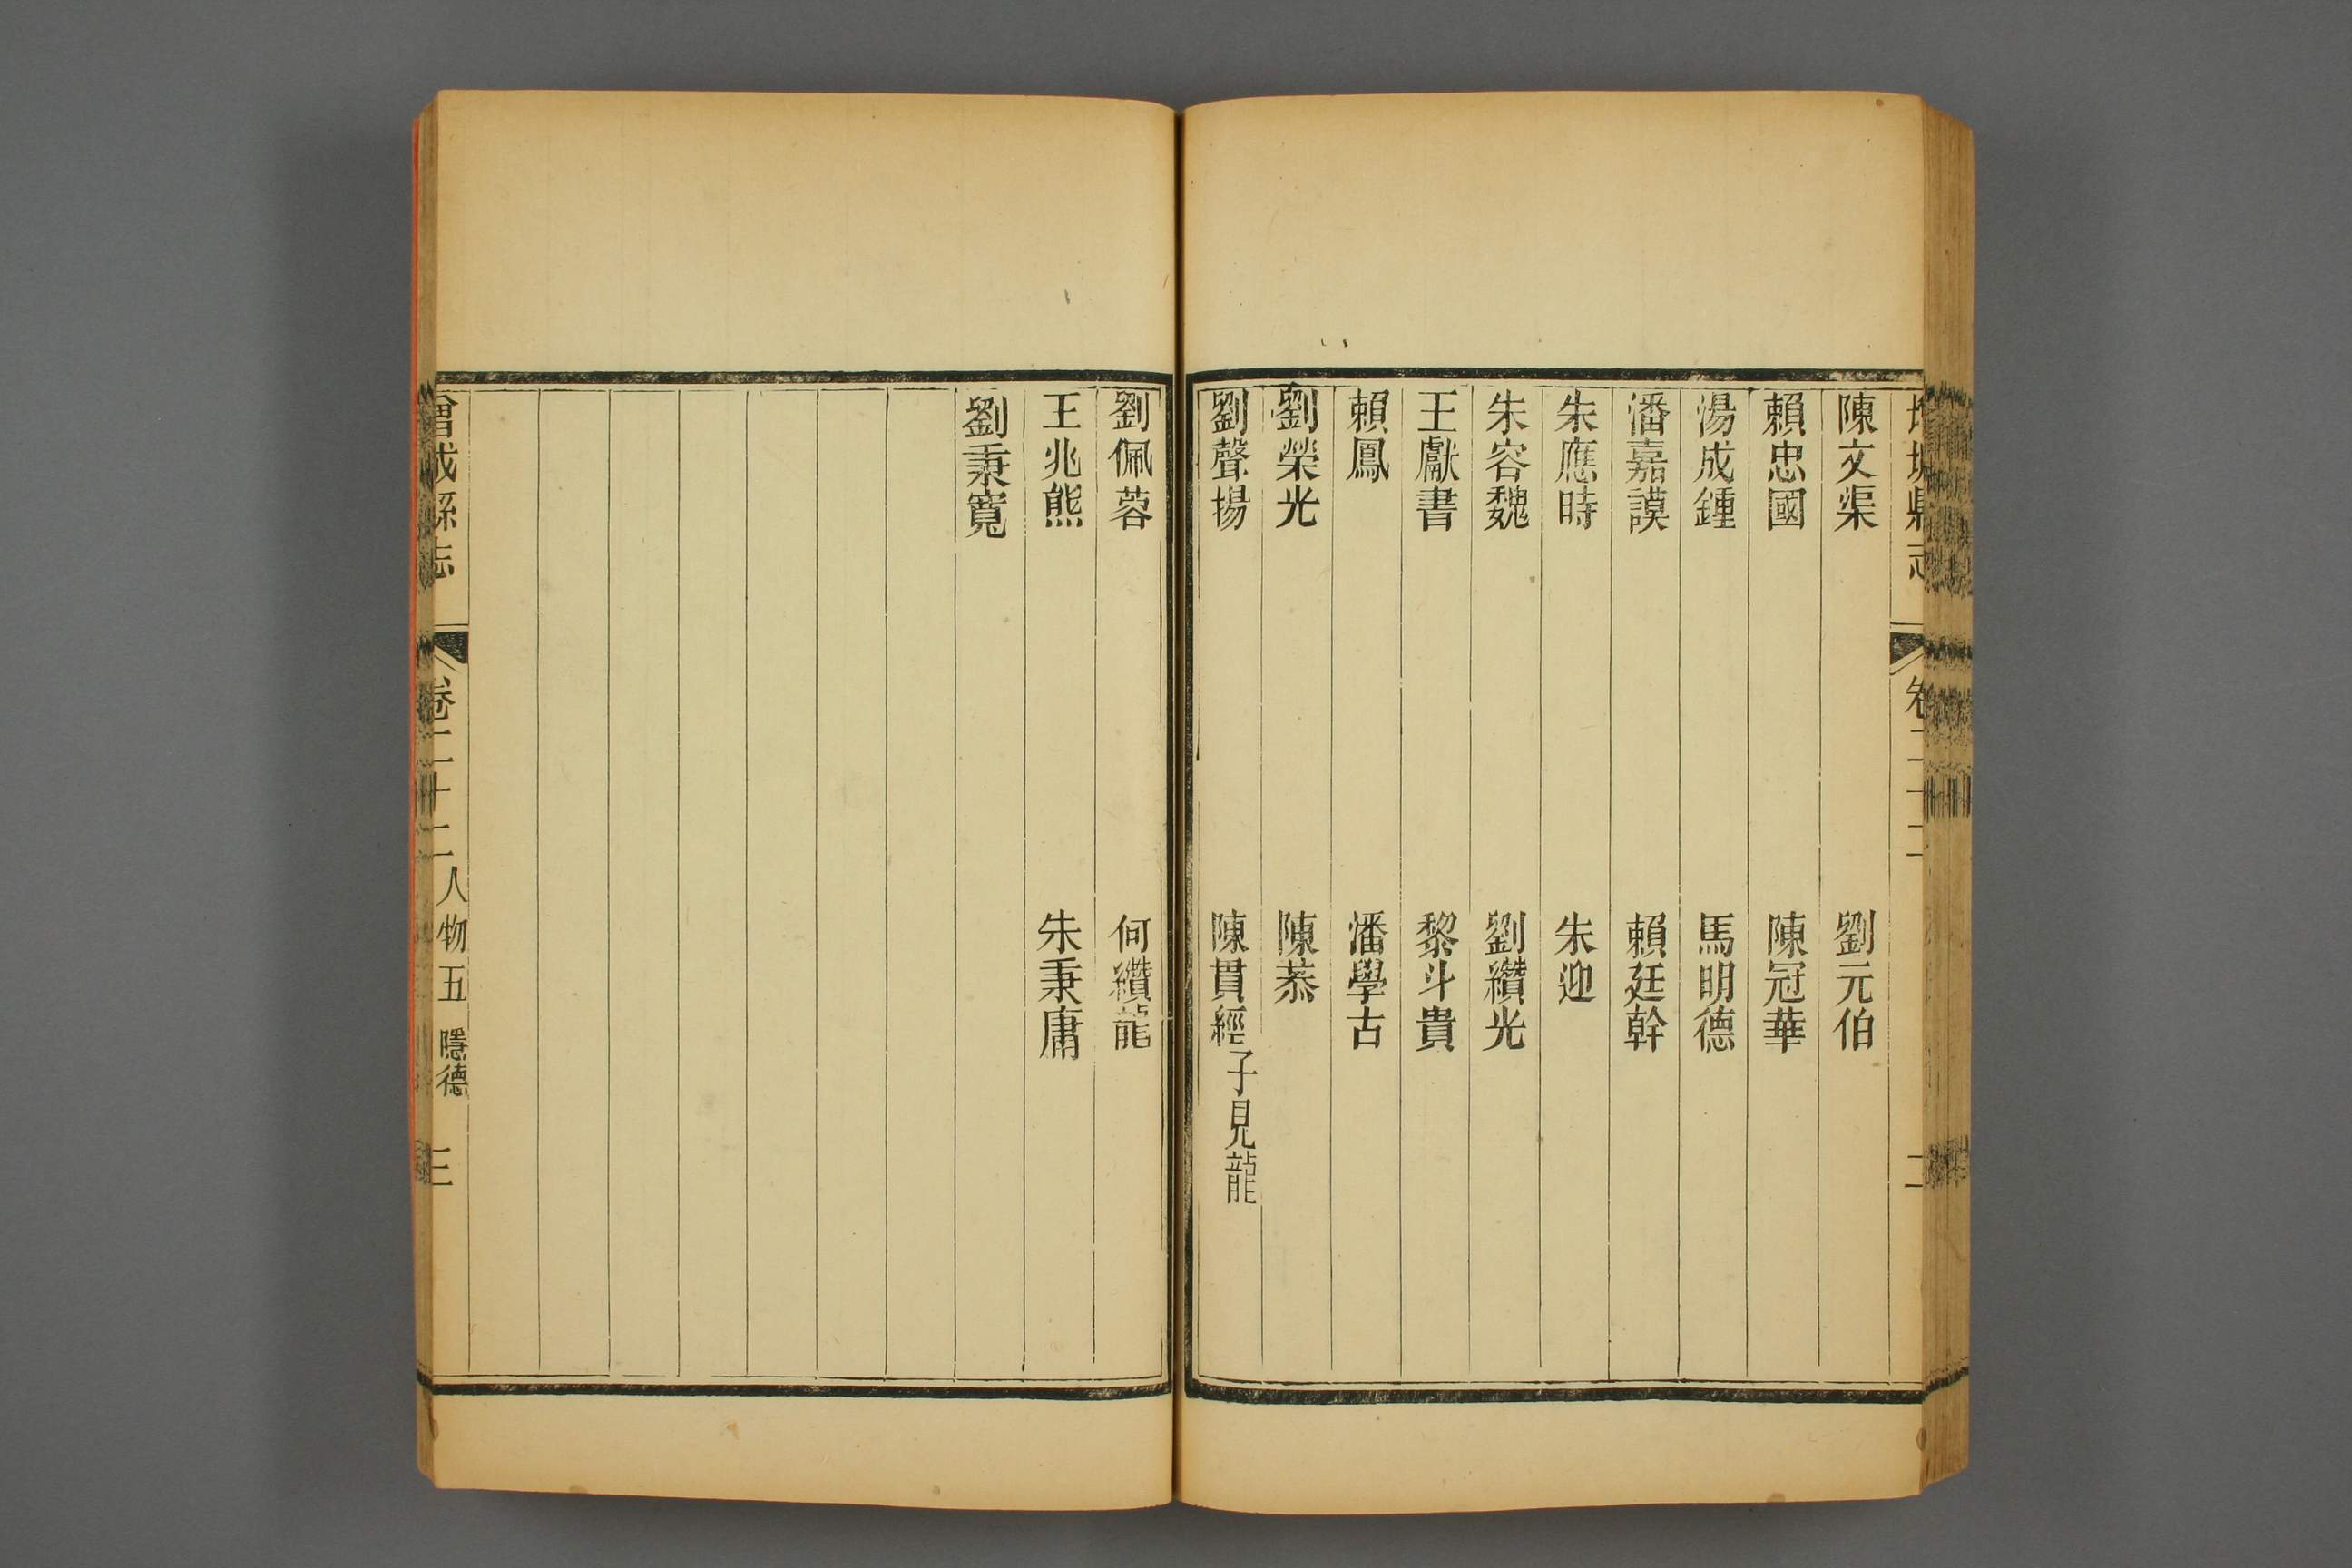 增城縣志 卷二十二 二
陳文渠 劉元伯
賴忠國 陳冠華
湯成鍾 馬明德
潘嘉謨 賴廷幹
朱應時 朱迎
朱容魏 劉纘光
王獻書 黎斗貴
賴鳳 潘學古
劉榮光 陳恭
劉聲揚 陳貫經子見龍
劉佩蓉 何纘龍
王兆熊 朱秉庸
劉秉寬
增城縣志 卷二十二 人物五 隱德 三